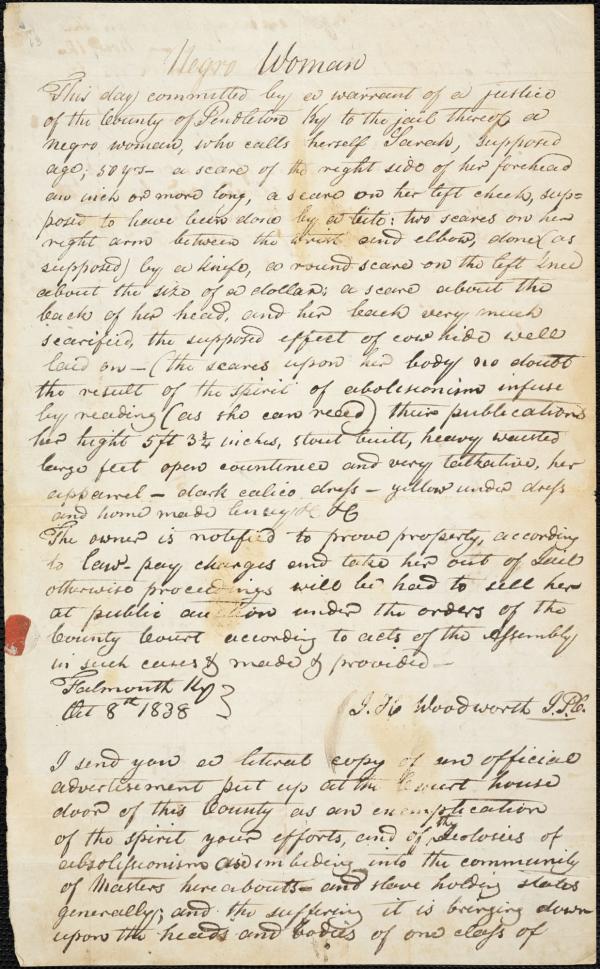 Negro Woman
This day committed by a warrant of a justice
of the County of Pendleton Ky to the jail thereof a
negro woman, who calls herself Sarah, supposed
age, 50 yrs - a scare of the right side of her forehead
an inch or more long, a scare on her left cheek, sup=
posed to have been done by a bite: two scares on her
right arm between the wrist and elbow, done (as
supposed) by a knife, a round scare on the left knee
about the size of a dollar; a scare about the
back of her head, and her back very much
scarified, the supposed effect of cow hide well
laid on - (the scares upon her body no doubt
the result of the spirit of abolisionism infuse
by reading (as she can read) their publications
her hight 5ft 3¼ inches, stout built, heavy waisted
large feet open countinice and very talkative, her
apparrel - dark calico dress - yellow under dress
and home made linsey &c &c
The owner is notified to prove property, according
to law - pay charges and take her out of Jail
otherwise proceedings will be had to sell her
at public auction under the orders of the
County Court according to acts of the Assembly
in such cases & made & provided -
Falmouth Ky
Oct 8th 1838 } J. H. Woodworth J.P.C.
I send you a literal copy of an official
advertisement put up at the Court house
door of this County as an exemplication
of the spirit your efforts, and of the
absolissionism are imbibing into the community
of Masters hereabouts - and slave holding states
generally; and the suffering it is bringing down
upon the heads and bodies of one class of